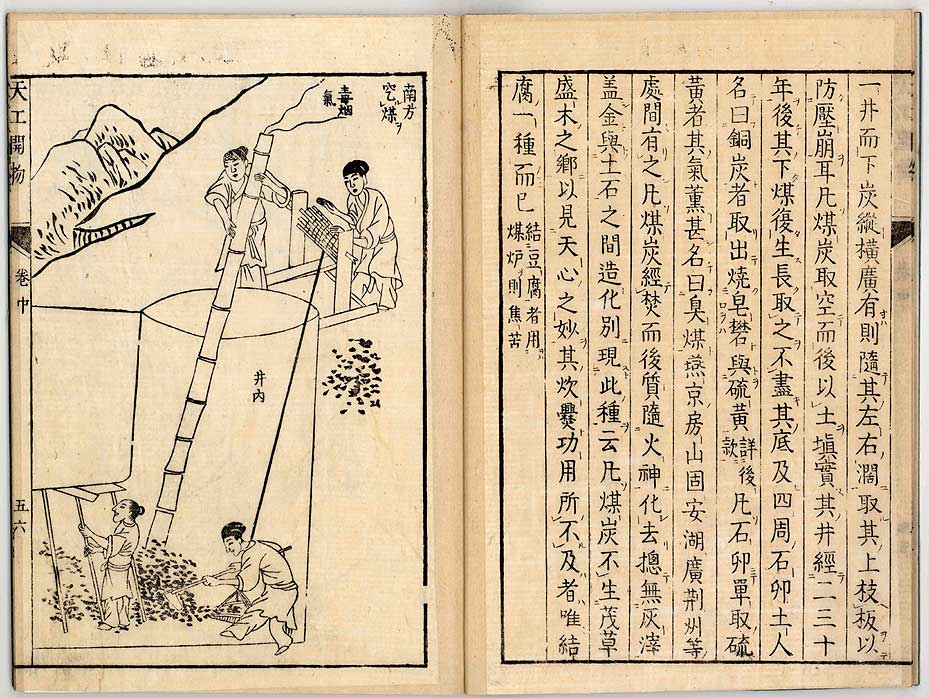 一井而下炭縱橫廣有則隨其左右濶取其上枝板以
防壓崩耳凡煤炭取空而後以土塡實其井經二三十
年後其下煤復生長取之不盡其底及四周石卵土人
名曰銅炭者取出燒皂礬與硫黄詳後款凡石卵單取硫
黄者其氣薰甚名曰臭煤燕京房山固安湖廣荆州等
處間有之凡煤炭經焚而後質隨火神化去摠無灰滓
盖金與土石之間造化別現此種云凡煤炭不生茂草
盛木之鄉以見天心之妙其炊爨功用所不及者唯結
腐一種而已結豆腐者用煤炉則焦苦
南方
空煤
毒烟
氣
井内
天工開物
卷中
五六